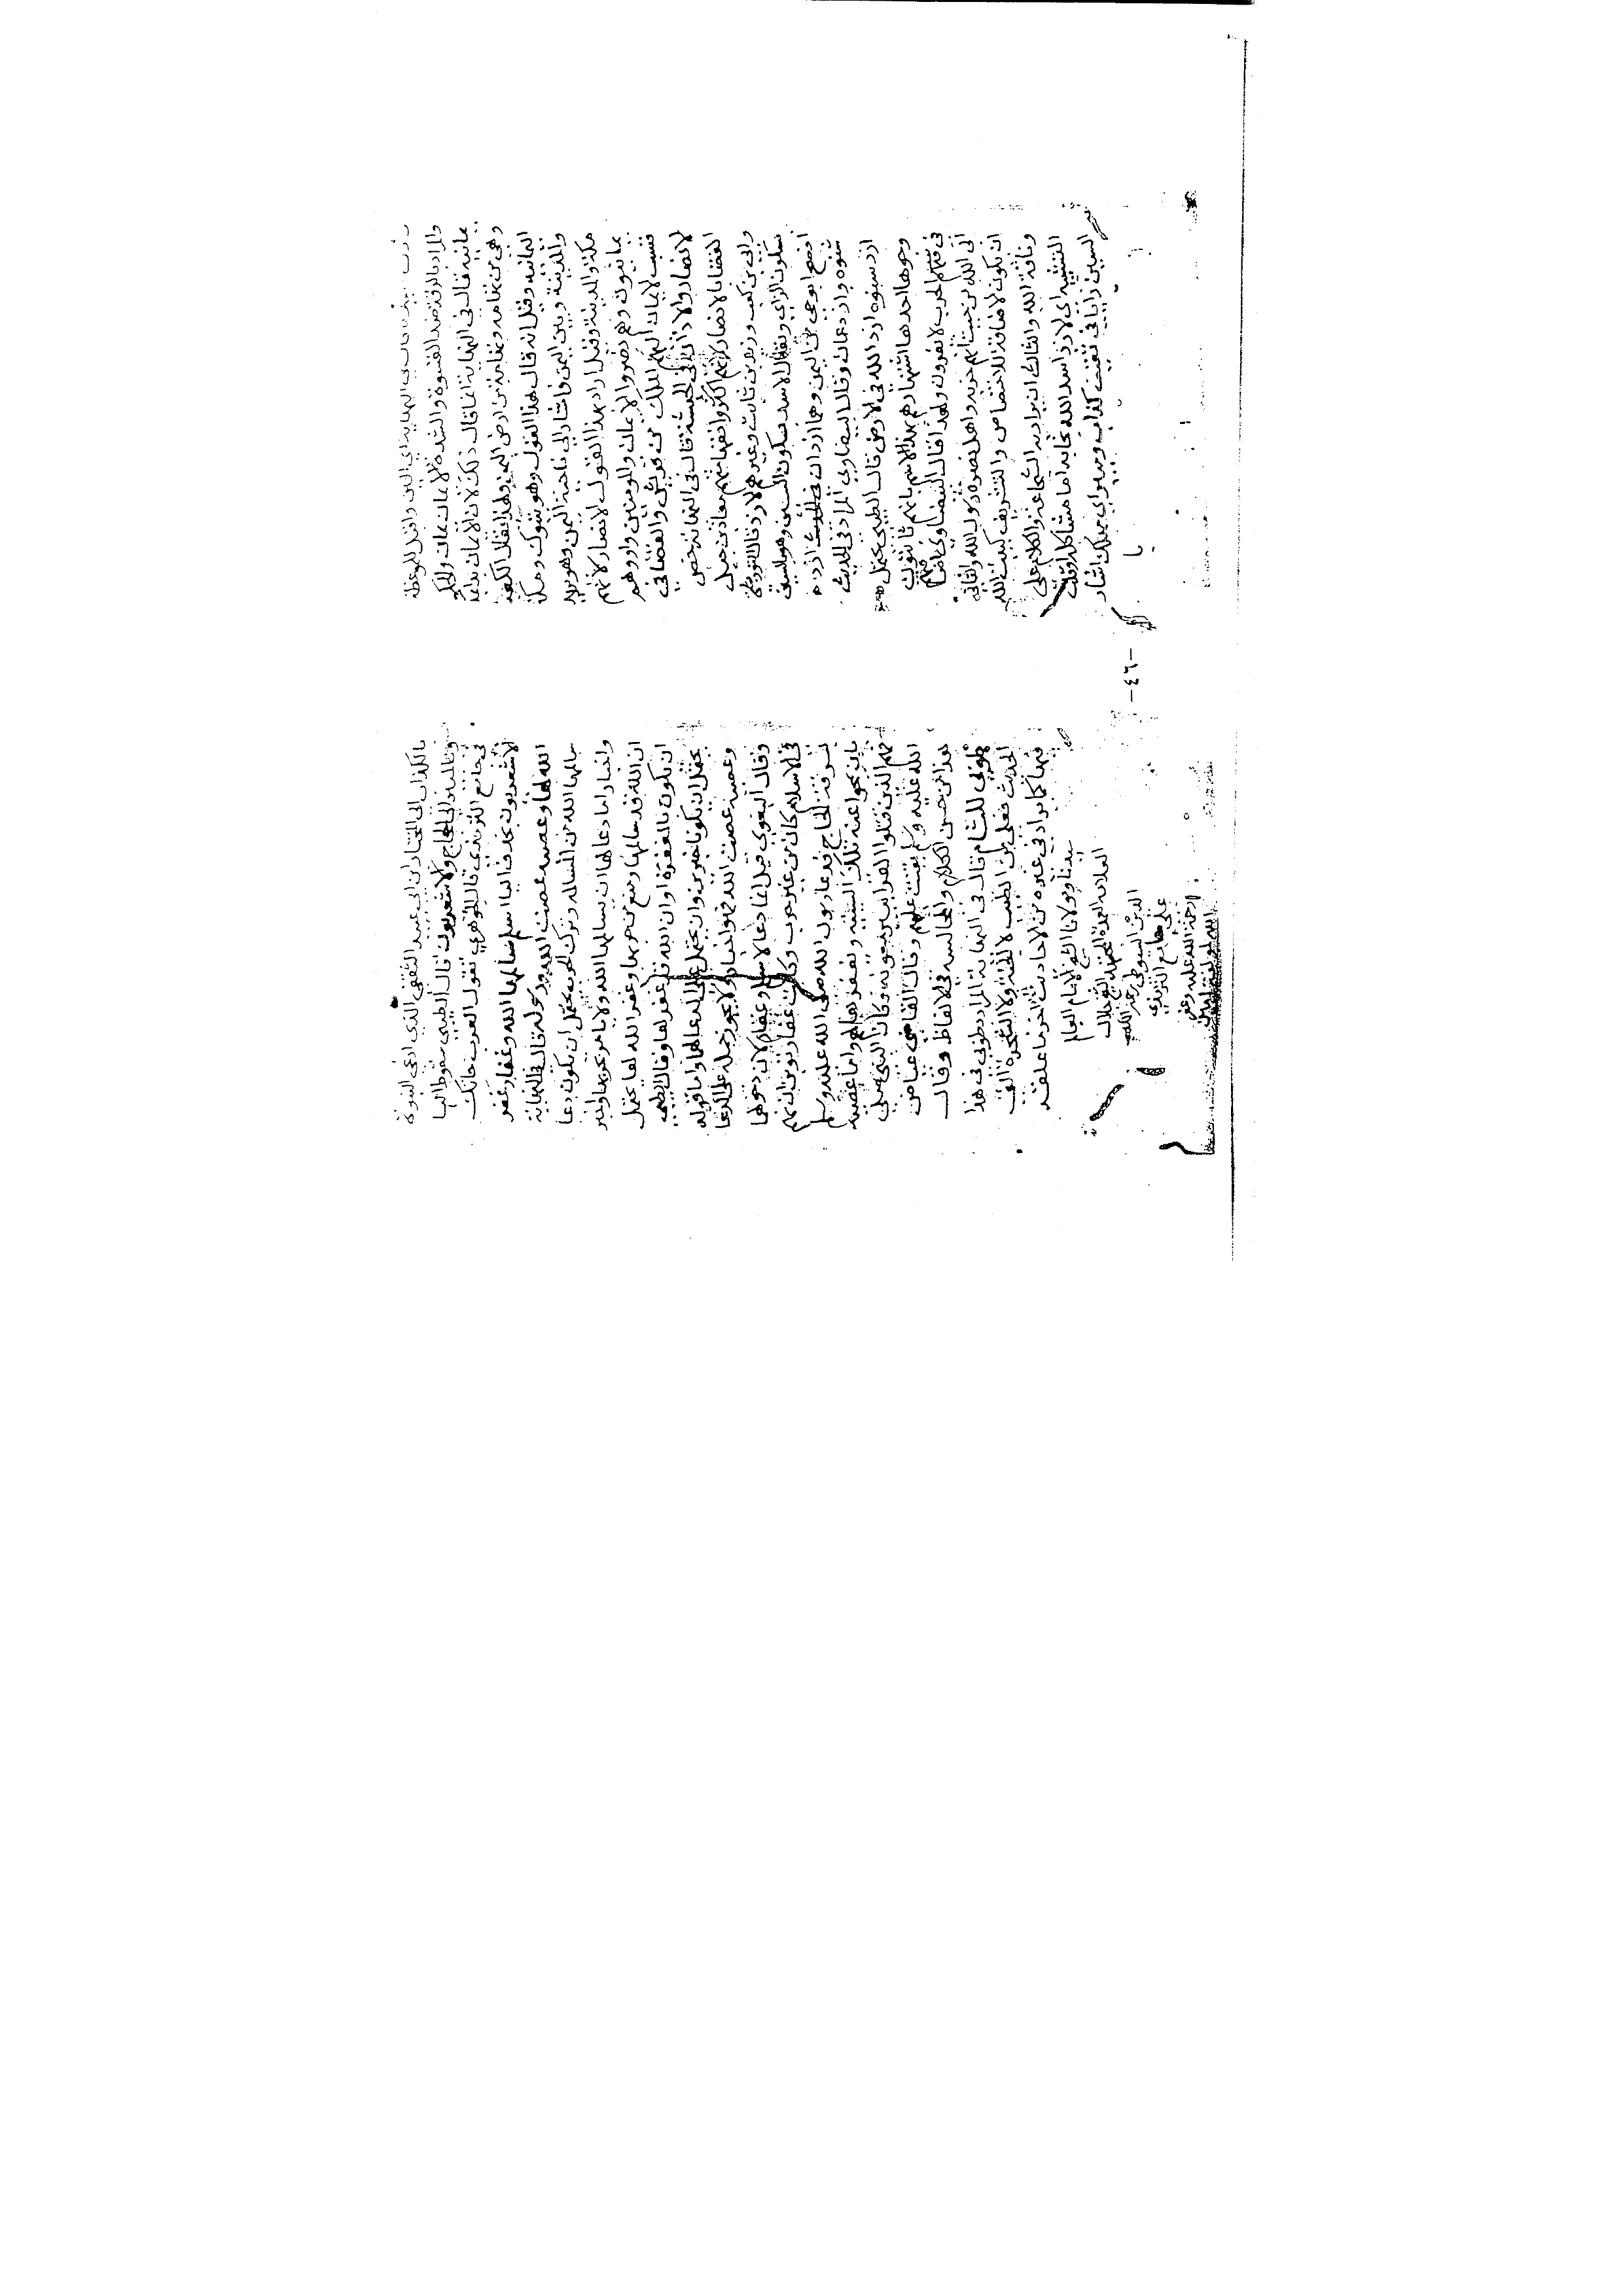 والمراد بالرقة ضد القسوة والشدة الايمان يمان والحكمة
يمانية قال في النهاية انما قال ذلك لان الايمان بدا من مكة
وهي من تهامة وتهامة من ارض اليمن ولهذا يقال الكعبة
اليمانية وقيل انه قال هذا القول وهو بتبوك ومكة
والمدينة وبين اليمن فاشار الى ناحية اليمن وهو يريد
مكة والمدينة وقيل اراد بهذا القول الانصار لانهم
يمانيون وهم نصروا الايمان والمومنين واووهم
فنسب الايمان اليهم الملك في قريش والقضا في
الانصار والاذان في الحبشة قال في النهاية خص
القضا بالانصار لانهم اكثر فقها منهم معاذ بن جبل
وابي بن كعب وزيد بن ثابت وغيرهم الازد قال التوربشتي
بسكون الزاي ويقال الاسد بسكون السين وهو بالسين
افصح ابو حي من اليمن وهما ازدان ازد
شنوه وازد عمان وقال البيضاوي المراد في الحديث
ازد شنوه ازد الله في الارض قال الطيبي يحتمل
وجوها احدها اشتهارهم بهذا الاسم لانهم ثابتون
في قتالهم الحرب لا يفرون ولهذا قال البيضاوي اضافهم
الى الله من حيث انهم حزبه واهل نصرة رسول الله والثاني
ان تكون الاضافة للاختصاص والتشريف كبيت الله
وناقة الله والثالث ان يراد به الشجاعة والكلام على
التشبيه اي الازد اسد الله فجا به اما مشاكلة او قلب
السين زايا في ثقيف كذاب ومبير اي مهلك اشار
-٤٦-
بالكذاب الى المختار بن ابي عبيد الثقفي الذي ادعى النبوة
وبالمبير الى الحجاج والاشعريون قال الطيبي سقوط اليا
في جامع الترمذي قال الجوهري تقول العرب جاتك
الاشعرون بحذف اليا اسلم سالمها الله وغفار غفر
الله لها وعصية عصت الله ورسوله قال في النهاية
سالمها الله من المسالمة وترك الحرب يحتمل ان يكون دعا
واخبارا اما دعا لها ان يسالمها الله ولا يامر بحربها او اخبر
ان الله قد سالمها ومنع من حربها وغفر الله لها يحتمل
ان يكون دعا بالمغفرة او ان الله قد غفر لها وقال الطيبي
يحتمل ان يكونا خبرين وان يحتمل على الدعا لهما واما قوله
وعصية عصت الله فهو اخبار ولا يجوز حمله على الدعا
وقال البغوي قيل انما دعا لاسلم وغفار لان دخولهما
في الاسلام كان من غير حرب وكانت غفار تزن
بسرقة الحاج فدعا رسول الله صلى الله عليه وسلم
بان يمحو عنهم تلك السيئة ويغفرها لهم واما عصية
فهم الذين قتلوا القرا ببير معونة وكان النبي صلى
الله عليه وسلم يقنت عليهم وقال القاضي عياض
هذا من حسن الكلام والمجانسة في الالفاظ وقال
طوبى للشام قال في النهاية المراد بطوبى في هذا
الحديث فعلى من الطيب لا الجنة ولا الشجرة التي
فيها كما يراد في غيره من الاحاديث اخر ما علقه
سيدنا ومولانا الشيخ الامام العالم
العلامة العمدة المجتهد الشيخ جلال
الدين السيوطي رحمه الله
على جامع الترمذي
رحمة الله عليه